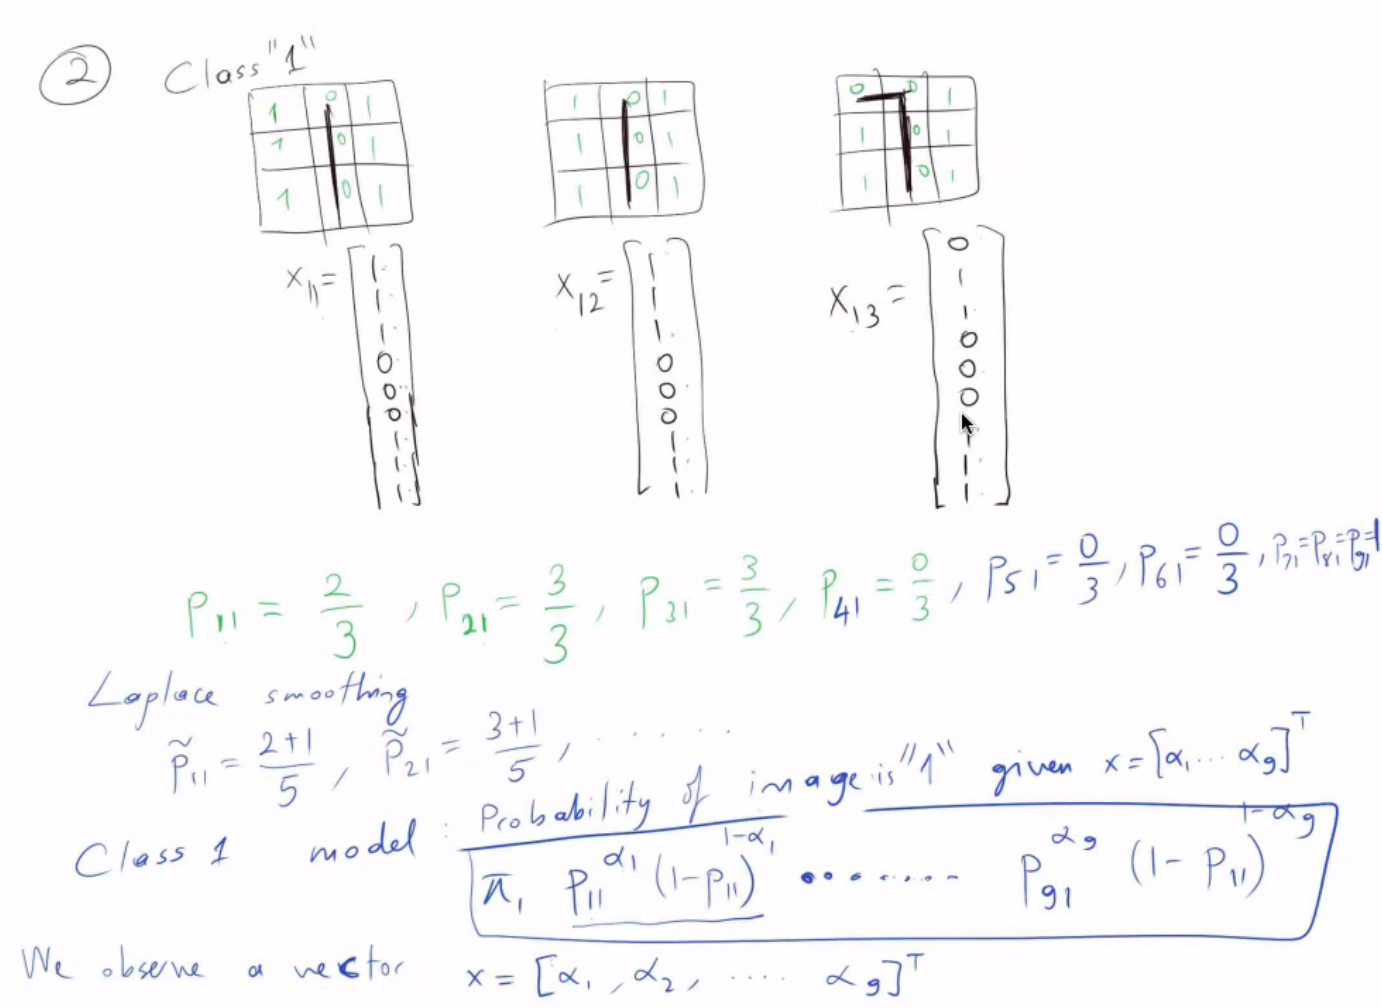 ② Class "1"
1 0 1
1 0 1
1 0 1
1 0 1
1 0 1
1 0 1
0 0 1
1 0 1
1 0 1
x₁₁ = [1 1 1 0 0 0 1 1 1]
x₁₂ = [1 1 1 0 0 0 1 1 1]
x₁₃ = [0 1 1 0 0 0 1 1 1]
P₁₁ = 2/3, P₂₁ = 3/3, P₃₁ = 3/3, P₄₁ = 0/3, P₅₁ = 0/3, P₆₁ = 0/3, P₇₁=P₈₁=P₉₁=1
Laplace smoothing
P̃₁₁ = (2+1)/5, P̃₂₁ = (3+1)/5, ......
Class 1 model: Probability of image is "1" given x = [α₁ ... α₉]ᵀ
π₁ P₁₁^α₁ (1-P₁₁)^(1-α₁) ........ P₉₁^α₉ (1-P₁₁)^(1-α₉)
We observe a vector x = [α₁, α₂, .... α₉]ᵀ